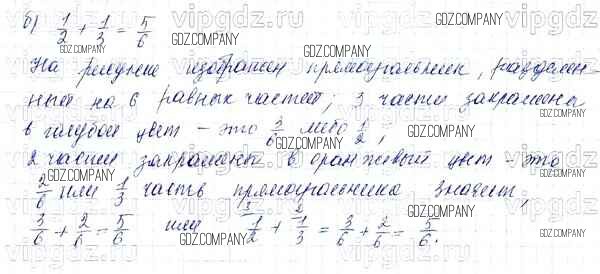 б) 1/2 + 1/3 = 5/6
На рисунке изображен прямоугольник, разделен-
нный на 6 равных частей; 3 части закрашены
в голубой цвет – это 3/6 либо 1/2,
2 части закрашены в оранжевый цвет – это
2/6 или 1/3 часть прямоугольника значит,
3/6 + 2/6 = 5/6 или 3 1/2 + 2 1/3 = 3/6 + 2/6 = 5/6.
vipgdz.ru
GDZ.COMPANY